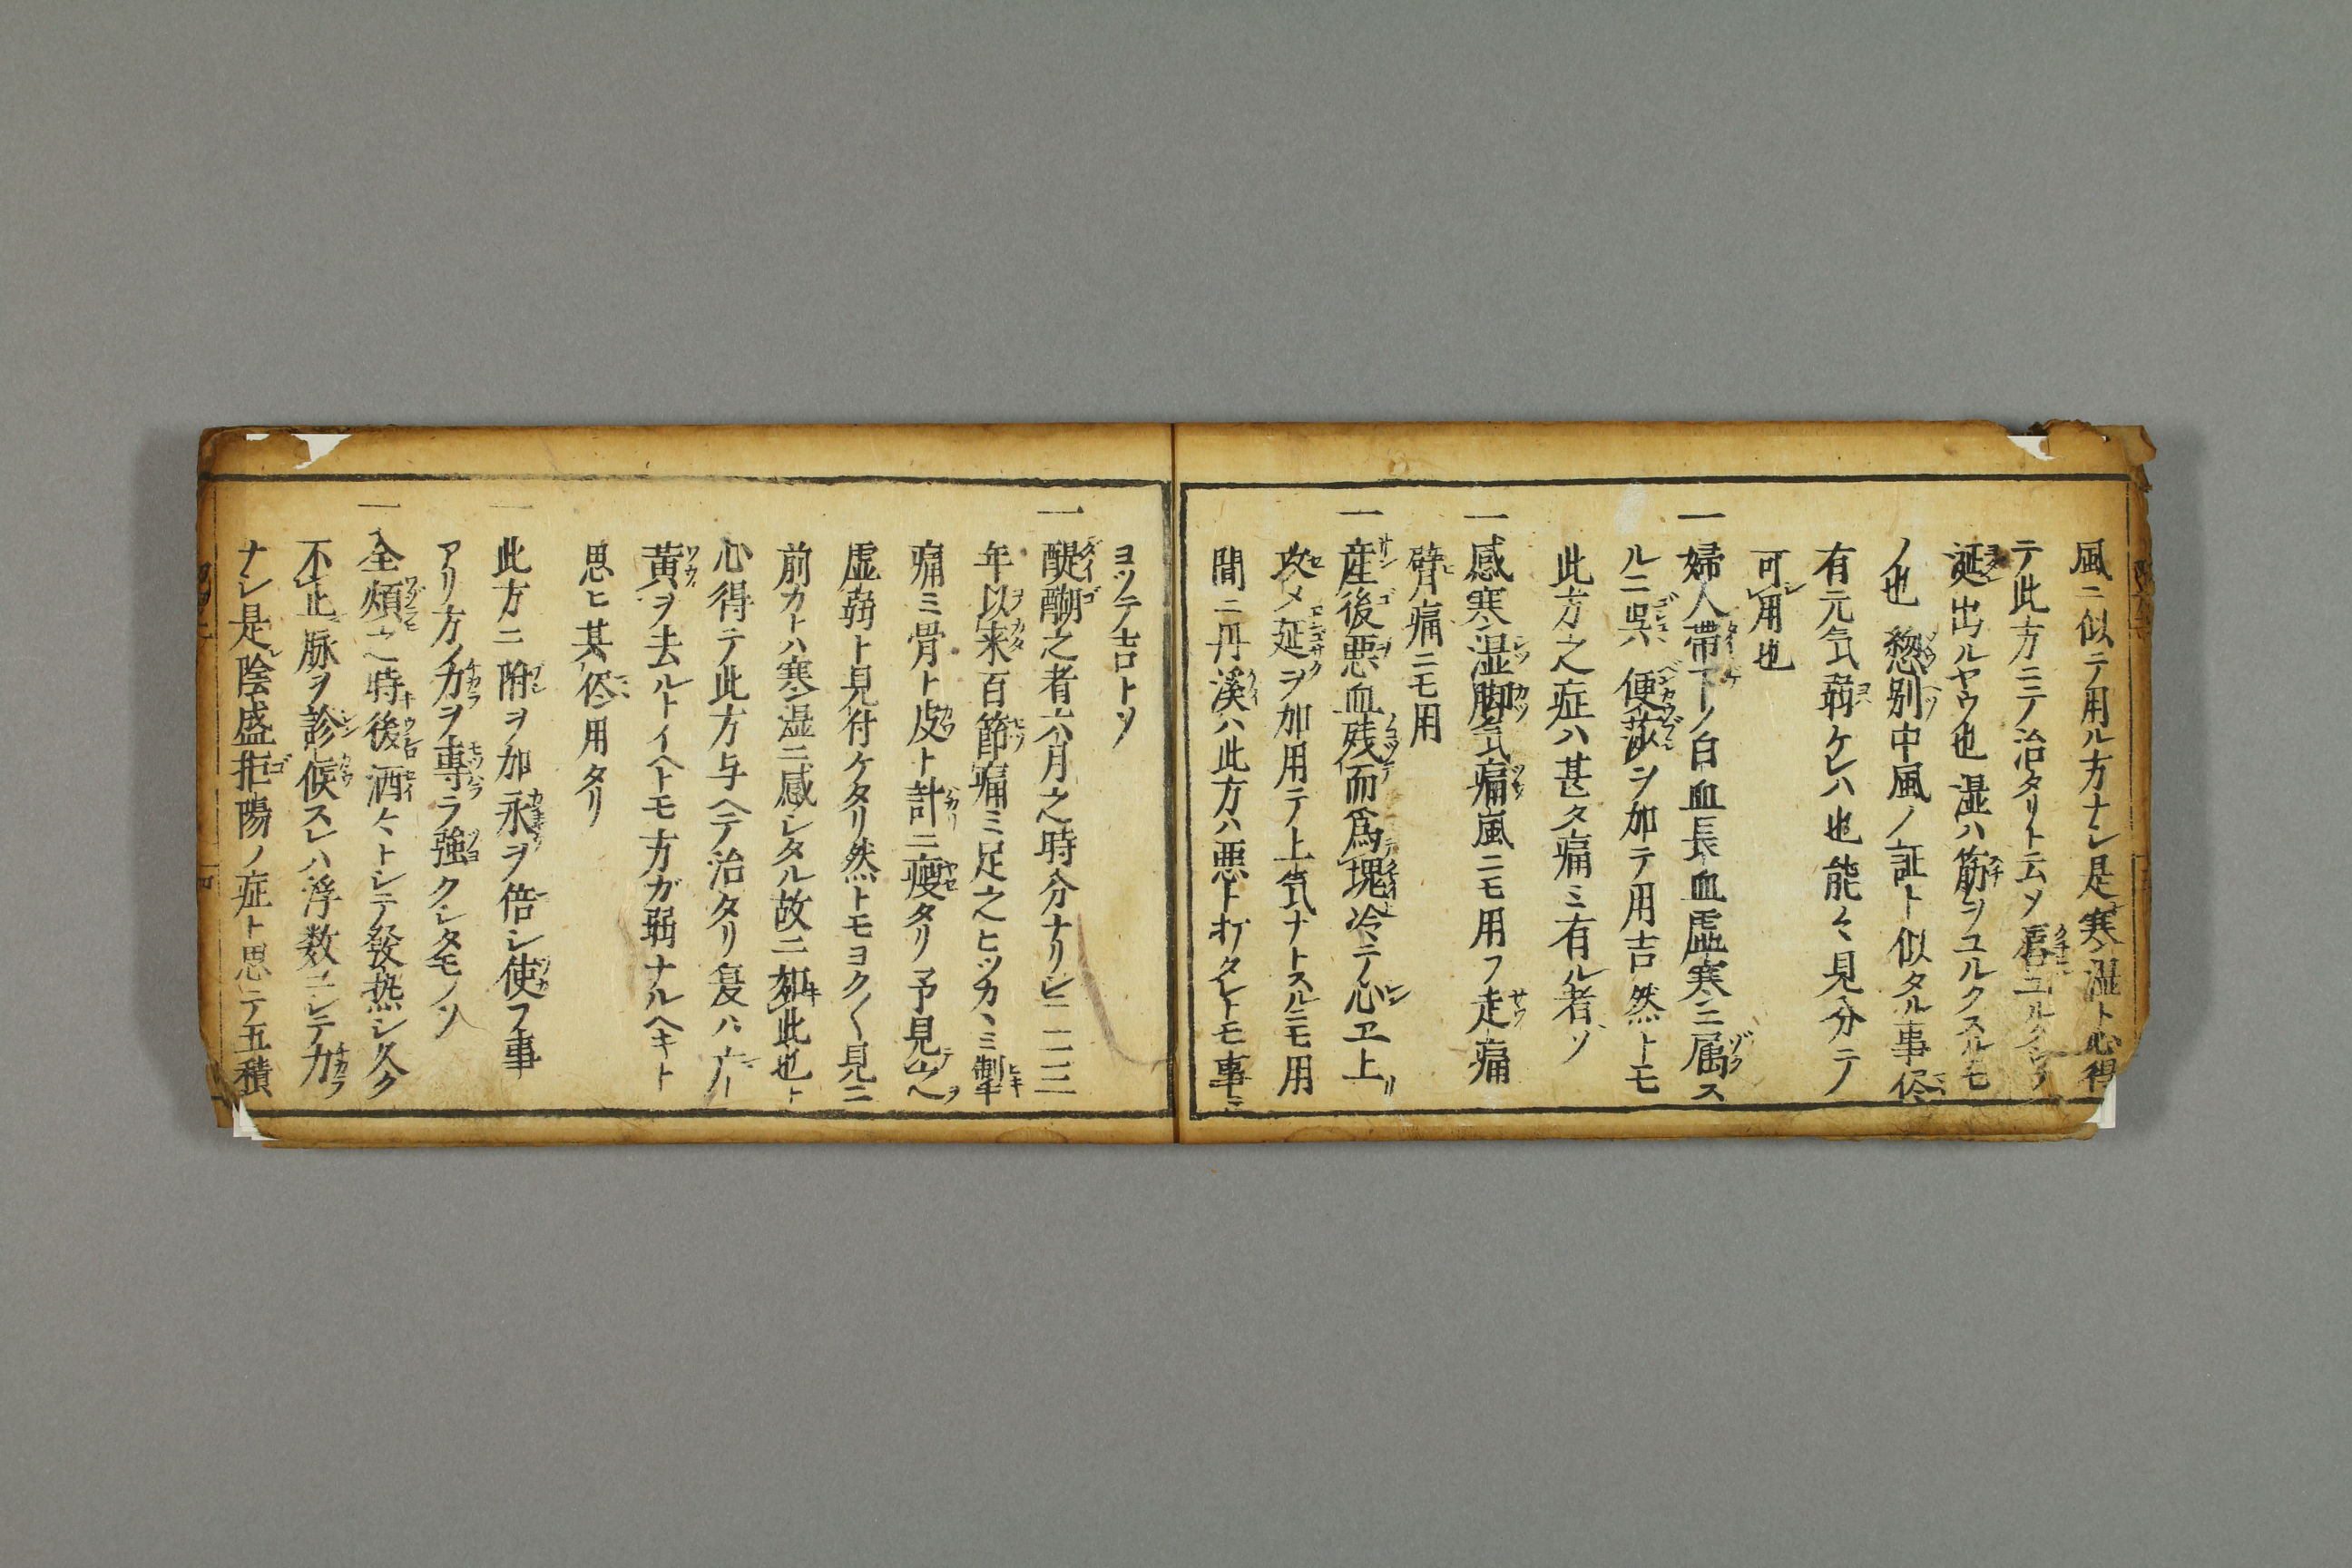 風ニ似テ用ル方ナシ是寒湿ト心得
テ此方ニテ治タリト云ソ唇ユルク
涎出ルヤウ也湿ハ筋ヲユルクスルモ
ノ也惣別中風ノ証ト似タル事
有元気弱ケレハ也能々見分テ
可用也
一婦人帯下ノ白血長血虚寒ニ属ス
ルニ呉便ヲ加テ用吉然トモ
此方之症ハ甚タ痛ミ有ル者ソ
一感寒湿脚気痛風ニモ用フ走痛
臂痛ニモ用
一産後悪血残而為塊冷テ心ヱ上
攻メ延ヲ加用テ上気ナトスルニモ用
間ニ丹溪ハ此方ハ悪ト打タレトモ事ニ
ヨツテ吉トソ
一醍醐之者六月之時分ナリシニ二三
年以来百節痛ミ足之ヒツカヽミ掣
痛ミ骨ト皮ト計ニ瘦タリ予見之
虚弱ト見付ケタリ然トモヨク〱見ニ
前カトハ寒湿ニ感シタル故ニ如此也ト
心得テ此方与ヘテ治タリ復ハ
黄ヲ去ルトイヘトモ方ガ弱ナルヘキト
思ヒ其侭用タリ
一此方ニ附ヲ加永ヲ倍シ使フ事
アリ方ノ力ヲ専ラ強クシタモノソ
一全煩之時後洒々トシテ發熱シ久ク
不止脉ヲ診候スレハ浮数ニシテ力
ナシ是陰盛拒陽ノ症ト思テ五積